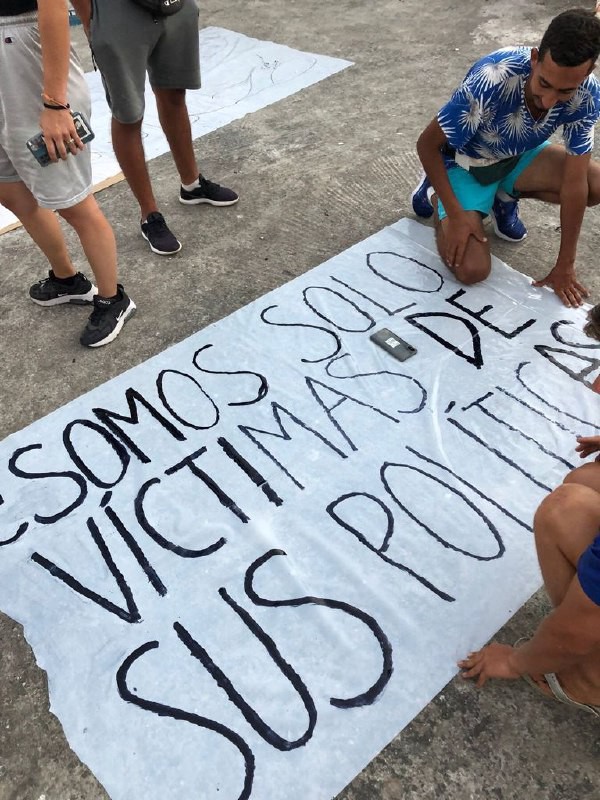 ¿SOMOS SOLO
VÍCTIMAS DE
SUS POLÍTICAS